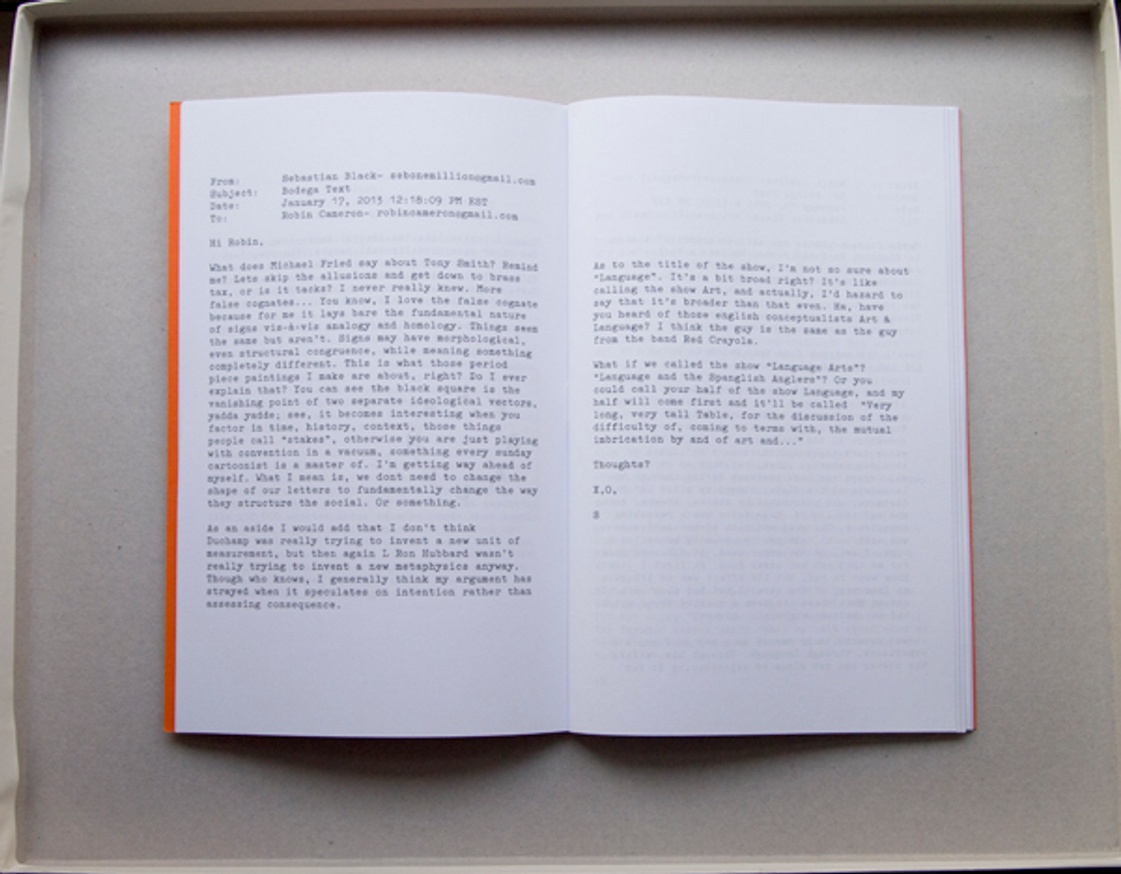 From: Sebastian Black- sebonemillion@gmail.com
Subject: Bodega Text
Date: January 17, 2013 12:18:09 PM EST
To: Robin Cameron- robincameron@gmail.com
Hi Robin,
What does Michael Fried say about Tony Smith? Remind
me? Lets skip the allusions and get down to brass
tax, or is it tacks? I never really knew. More
false cognates... You know, I love the false cognate
because for me it lays bare the fundamental nature
of signs vis-à-vis analogy and homology. Things seem
the same but aren't. Signs may have morphological,
even structural congruence, while meaning something
completely different. This is what those period
piece paintings I make are about, right? Do I ever
explain that? You can see the black square is the
vanishing point of two separate ideological vectors,
yadda yadda; see, it becomes interesting when you
factor in time, history, context, those things
people call "stakes", otherwise you are just playing
with convention in a vacuum, something every sunday
cartoonist is a master of. I'm getting way ahead of
myself. What I mean is, we dont need to change the
shape of our letters to fundamentally change the way
they structure the social. Or something.
As an aside I would add that I don't think
Duchamp was really trying to invent a new unit of
measurement, but then again L Ron Hubbard wasn't
really trying to invent a new metaphysics anyway.
Though who knows, I generally think my argument has
strayed when it speculates on intention rather than
assessing consequence.
As to the title of the show, I'm not so sure about
"Language". It's a bit broad right? It's like
calling the show Art, and actually, I'd hazard to
say that it's broader than that even. Ha, have
you heard of those english conceptualists Art &
Language? I think the guy is the same as the guy
from the band Red Crayola.
What if we called the show "Language Arts"?
"Language and the Spanglish Anglers"? Or you
could call your half of the show Language, and my
half will come first and it'll be called "Very
long, very tall Table, for the discussion of the
difficulty of, coming to terms with, the mutual
inbrication by and of art and..."
Thoughts?
X,O,
S